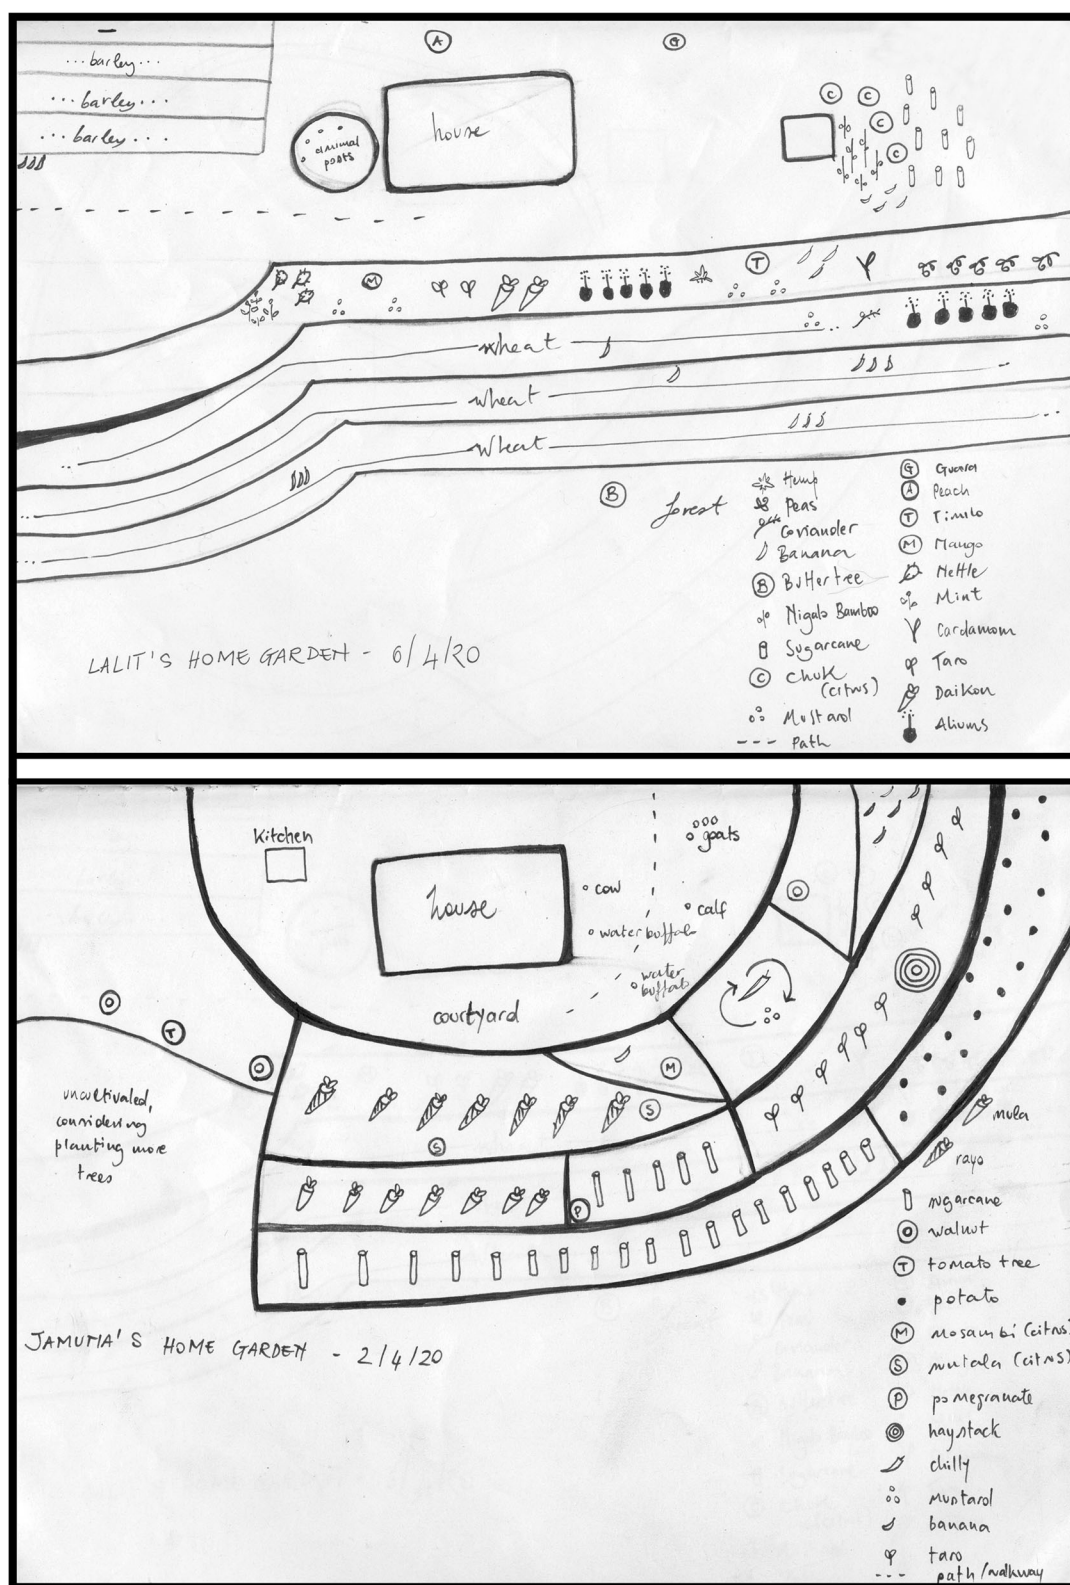 ...barley...
...barley...
...barley...
animal
posts
house
A
G
C
C
C
C
M
T
wheat
wheat
wheat
B
forest
Hemp
Peas
Coriander
Banana
B Buttertree
Nigalo Bamboo
Sugarcane
C Chuk
(citrus)
Mustard
--- Path
G Guava
A Peach
T Timilo
M Mango
Nettle
Mint
Cardamom
Taro
Daikon
Aliums
LALIT'S HOME GARDEN - 6/4/20
Kitchen
house
goats
cow
calf
water buffalo
water
buffalo
courtyard
T
M
S
S
P
uncultivated,
considering
planting more
trees
mula
rayo
sugarcane
walnut
T tomato tree
potato
M Mosambi (citrus)
S suntala (citrus)
P pomegranate
haystack
chilly
mustard
banana
taro
--- path/walkway
JAMUNA'S HOME GARDEN - 2/4/20